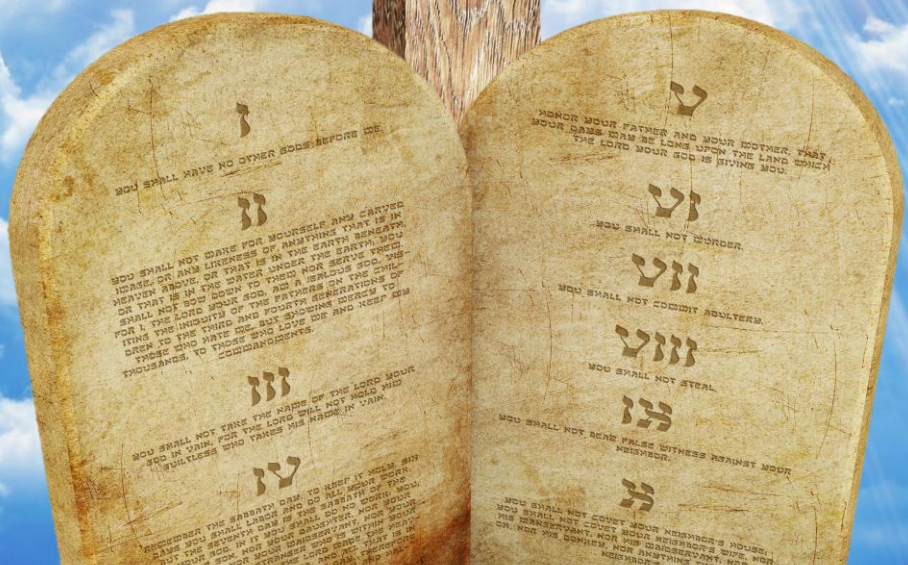 I
YOU SHALL HAVE NO OTHER GODS BEFORE ME.
II
YOU SHALL NOT MAKE FOR YOURSELF ANY CARVED
IMAGE, OR ANY LIKENESS OF ANYTHING THAT IS IN
HEAVEN ABOVE, OR THAT IS IN THE EARTH BENEATH,
OR THAT IS IN THE WATER UNDER THE EARTH. YOU
SHALL NOT BOW DOWN TO THEM NOR SERVE THEM.
FOR I, THE LORD YOUR GOD, AM A JEALOUS GOD, VIS-
ITING THE INIQUITY OF THE FATHERS ON THE CHIL-
DREN TO THE THIRD AND FOURTH GENERATIONS OF
THOSE WHO HATE ME, BUT SHOWING MERCY TO
THOUSANDS, TO THOSE WHO LOVE ME AND KEEP MY
COMMANDMENTS.
III
YOU SHALL NOT TAKE THE NAME OF THE LORD YOUR
GOD IN VAIN, FOR THE LORD WILL NOT HOLD HIM
GUILTLESS WHO TAKES HIS NAME IN VAIN.
IV
REMEMBER THE SABBATH DAY, TO KEEP IT HOLY. SIX
DAYS YOU SHALL LABOR AND DO ALL YOUR WORK,
BUT THE SEVENTH DAY IS THE SABBATH OF THE
GOD. IN IT YOU SHALL DO NO WORK: YOU,
NOR YOUR DAUGHTER, NOR YOUR
V
HONOR YOUR FATHER AND YOUR MOTHER, THAT
YOUR DAYS MAY BE LONG UPON THE LAND WHICH
THE LORD YOUR GOD IS GIVING YOU.
VI
YOU SHALL NOT MURDER.
VII
YOU SHALL NOT COMMIT ADULTERY.
VIII
YOU SHALL NOT STEAL
IX
YOU SHALL NOT BEAR FALSE WITNESS AGAINST YOUR
NEIGHBOR.
X
YOU SHALL NOT COVET YOUR NEIGHBOR'S HOUSE;
YOU SHALL NOT COVET YOUR NEIGHBOR'S WIFE, NOR
HIS MANSERVANT, NOR HIS MAIDSERVANT, NOR
OX, NOR HIS DONKEY, NOR ANYTHING